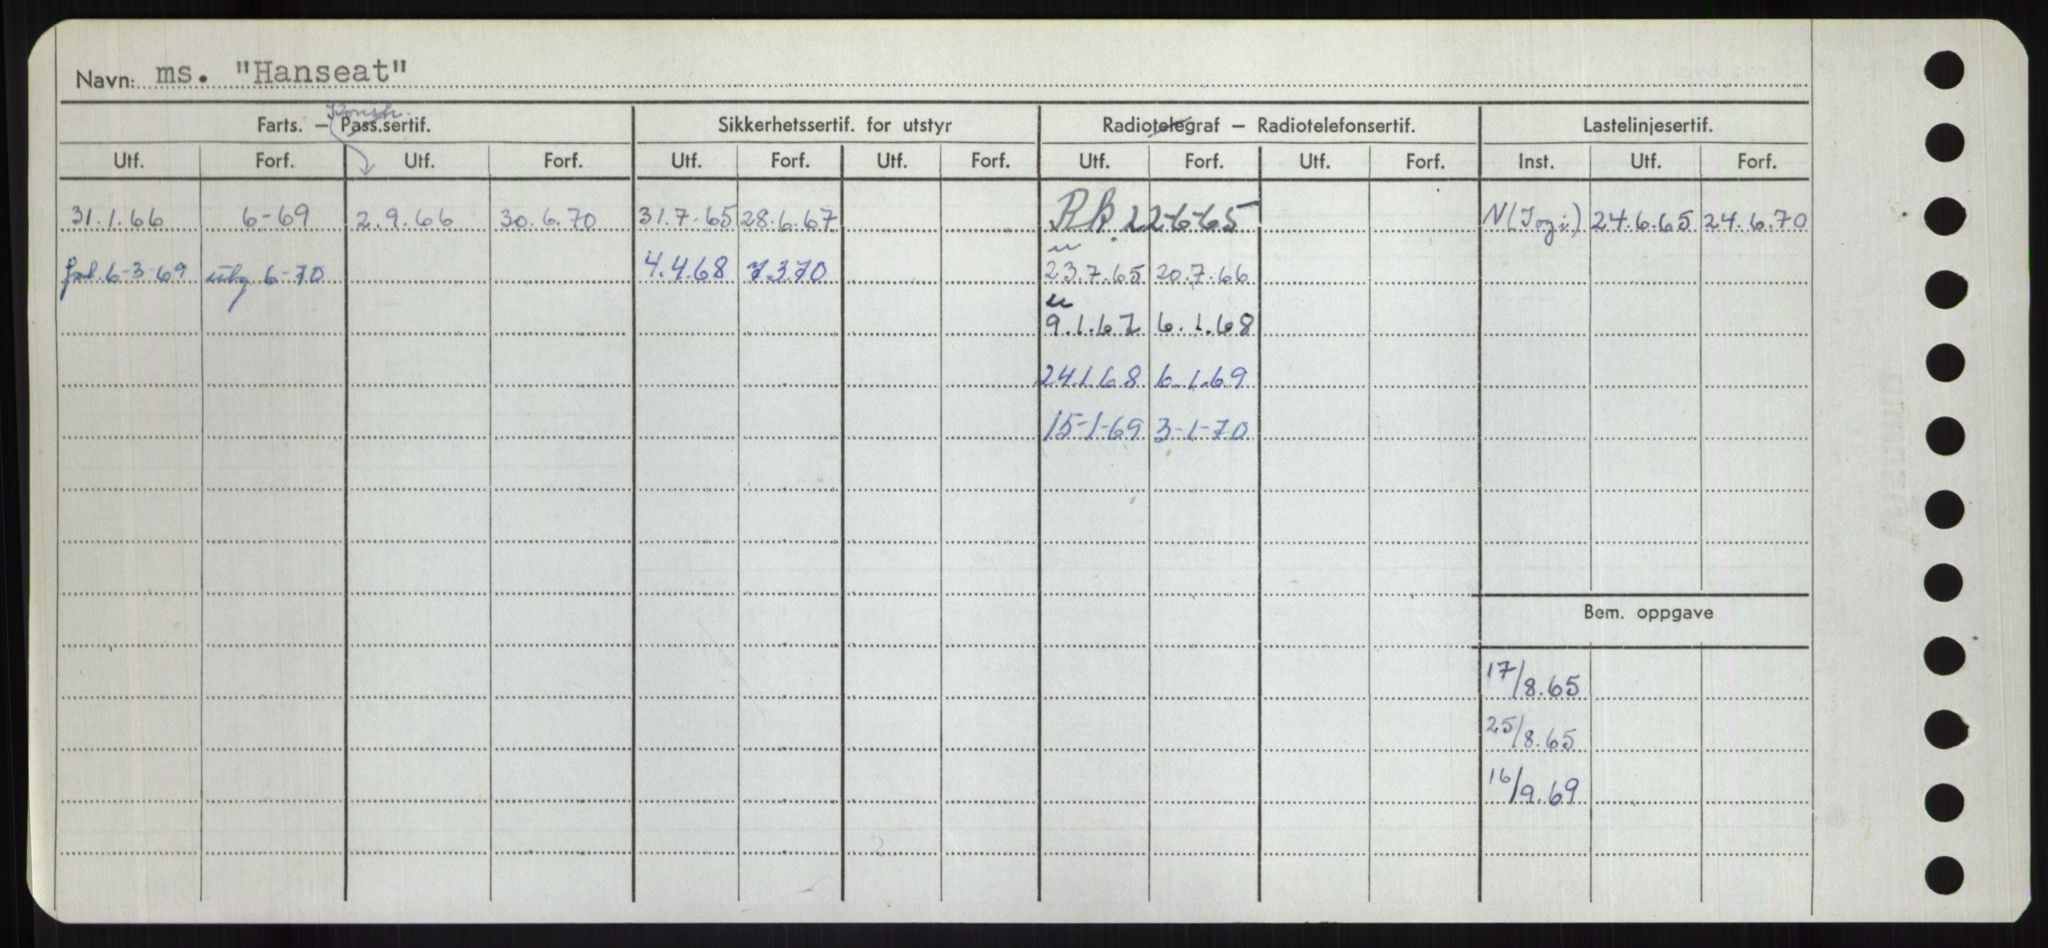 Navn: ms. "Hanseat"
Konstr.
Farts. – Pass.sertif. Sikkerhetssertif. for utstyr Radiotelegraf – Radiotelefonsertif. Lastelinjesertif.
Utf. Forf. Utf. Forf. Utf. Forf. Utf. Forf. Utf. Forf. Utf. Forf. Inst. Utf. Forf.
31.1.66 6-69 2.9.66 30.6.70 31.7.65 28.6.67 22-6-65 N 24.6.65 24.6.70
6-3-69 utg 6-70 4.4.68 7.3.70 23.7.65 20.7.66
9.1.67 6.1.68
24.1.68 6.1.69
15-1-69 3-1-70
Bem. oppgave
17/8.65
25/8.65
16/9.69